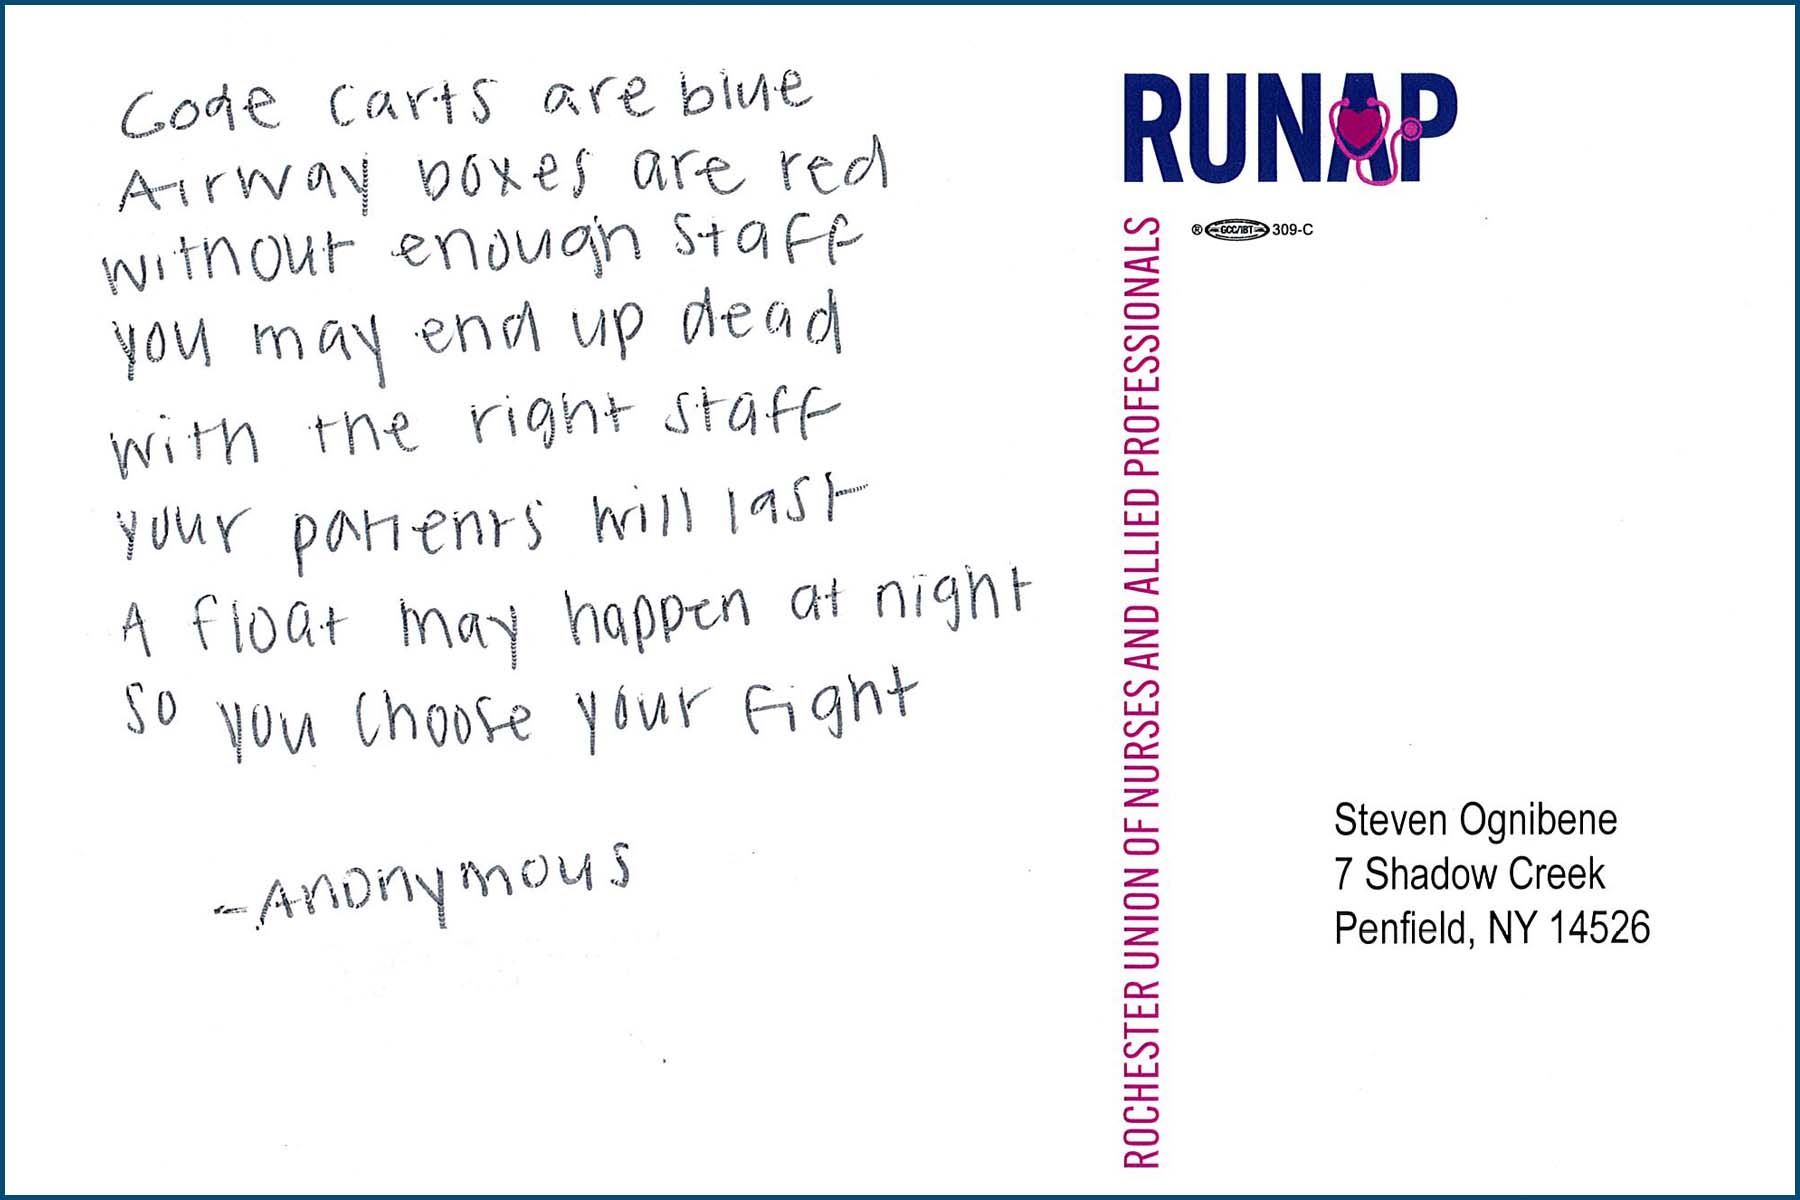 Code carts are blue
Airway boxes are red
without enough staff
you may end up dead
with the right staff
your patients will last
A float may happen at night
so you choose your fight
-Anonymous
RUNAP
® GCC/IBT 309-C
ROCHESTER UNION OF NURSES AND ALLIED PROFESSIONALS
Steven Ognibene
7 Shadow Creek
Penfield, NY 14526